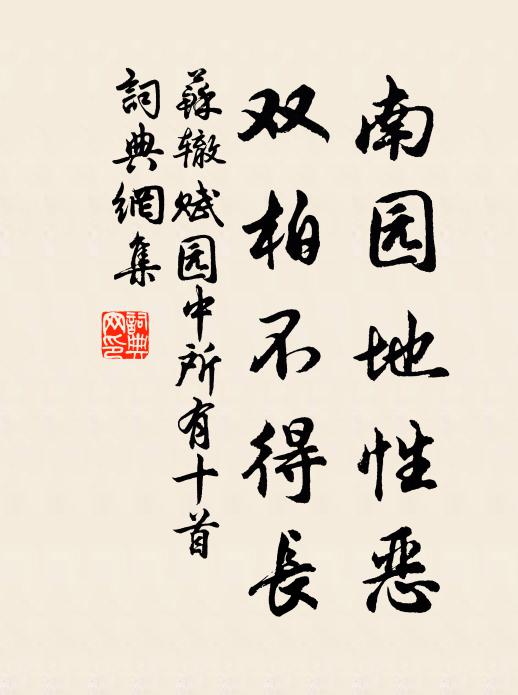 南园地性恶
双柏不得長
蘇辙赋园中所有十首
詞典網集
詞典網印